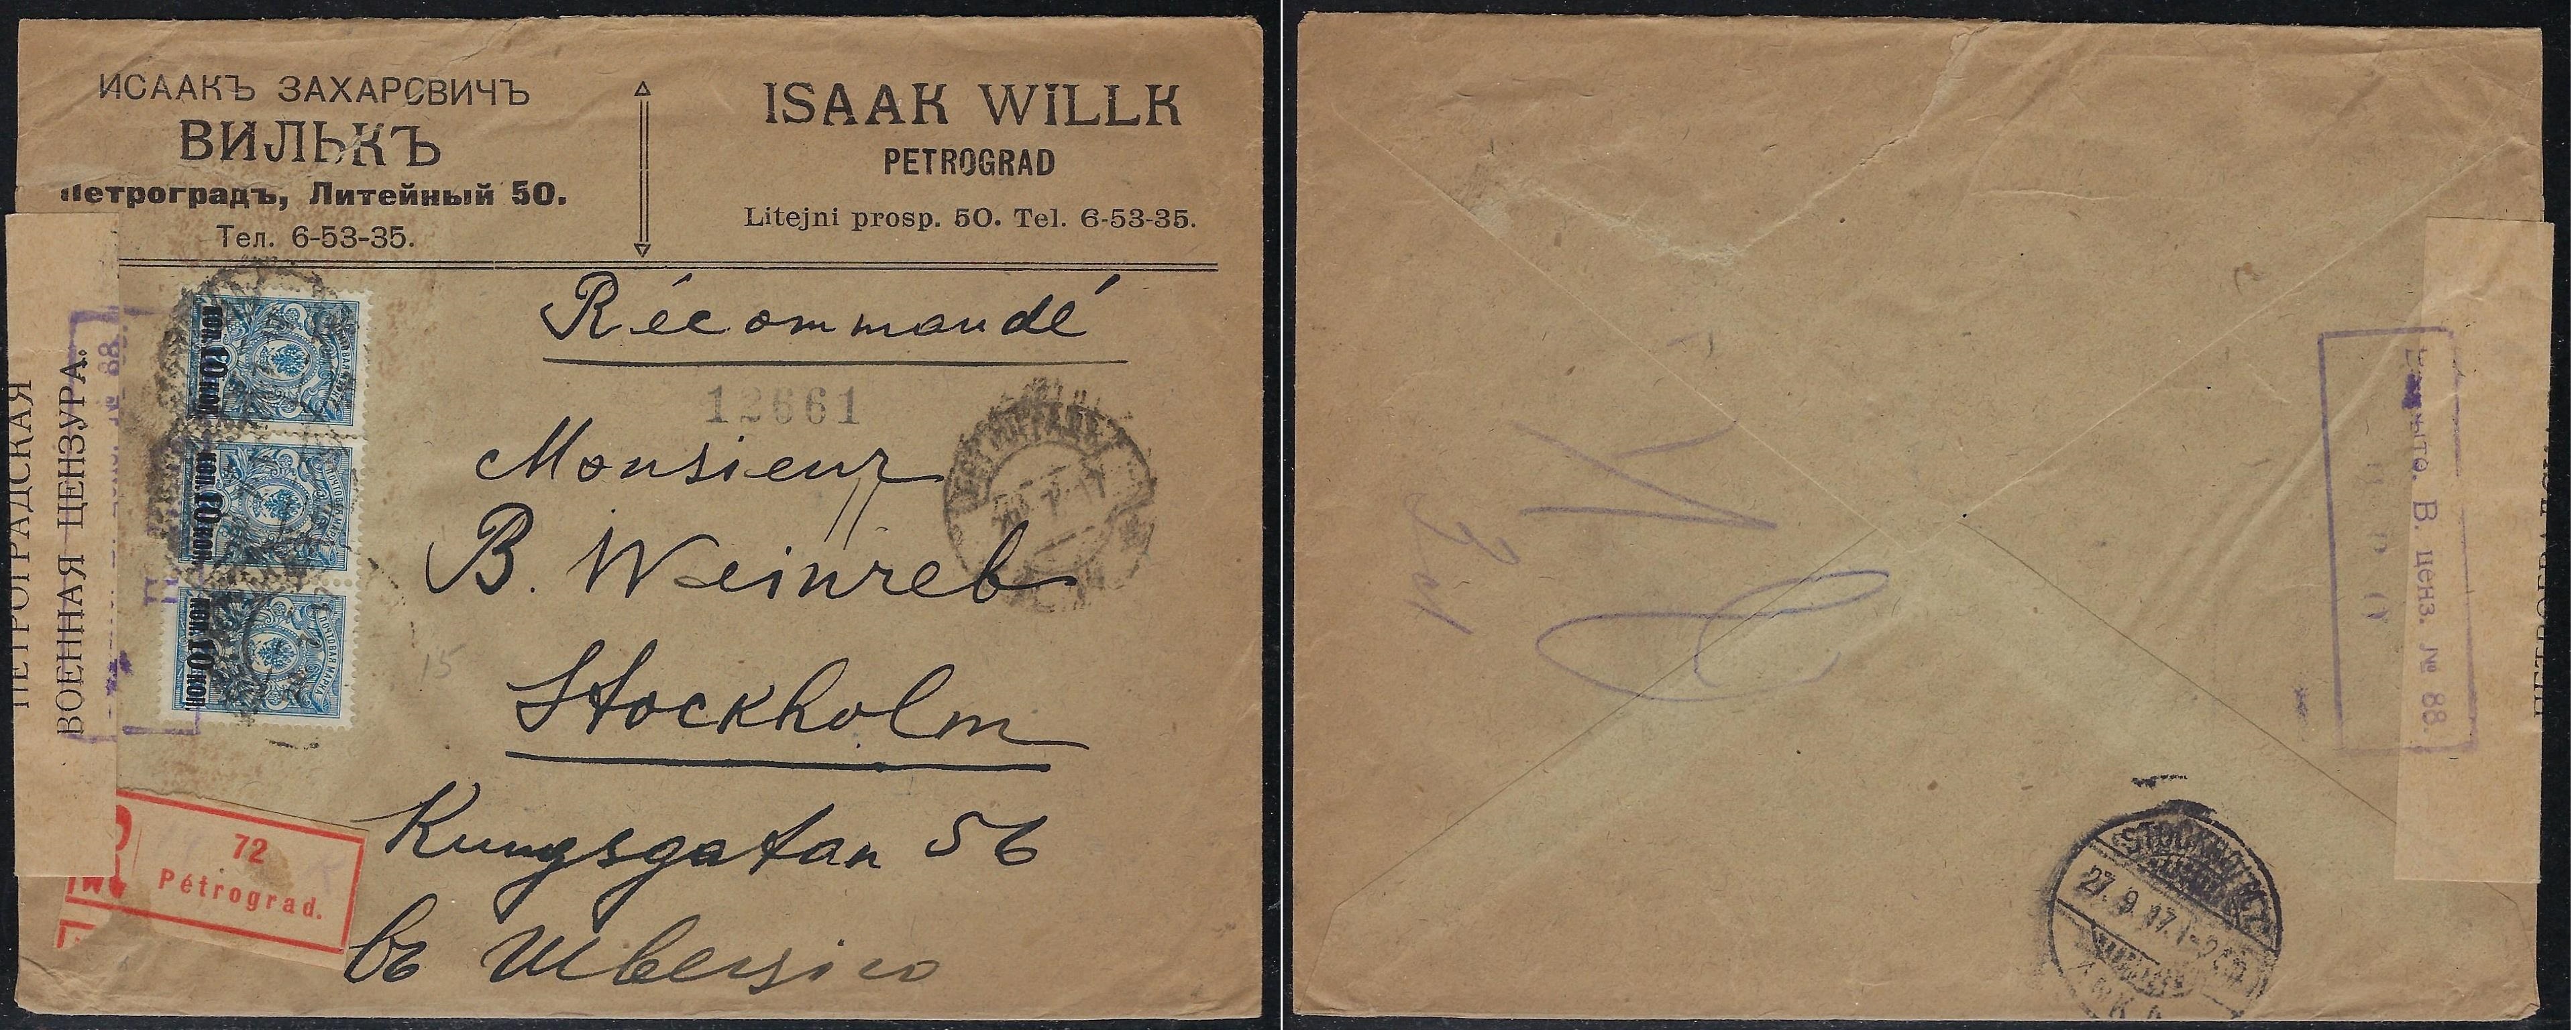 ИСААКЪ ЗАХАРОВИЧЪ
ВИЛЬКЪ
Петроградъ, Литейный 50.
Тел. 6-53-35.
ISAAK WILLK
PETROGRAD
Litejni prosp. 50. Tel. 6-53-35.
Récommandé
12661
Monsieur
B. Weinreb
Stockholm
Kungsgatan 56
въ Швецію
ПЕТРОГРАДСКАЯ
ВОЕННАЯ ЦЕНЗУРА.
№ 88.
коп. 10 коп.
ПОЧТОВАЯ МАРКА
коп. 10 коп.
ПОЧТОВАЯ МАРКА
коп. 10 коп.
ПОЧТОВАЯ МАРКА
ПЕТРОГРАДЪ
15
72
Pétrograd.
Вскрыто. В. ценз. № 88.
STOCKHOLM
27.9.17.